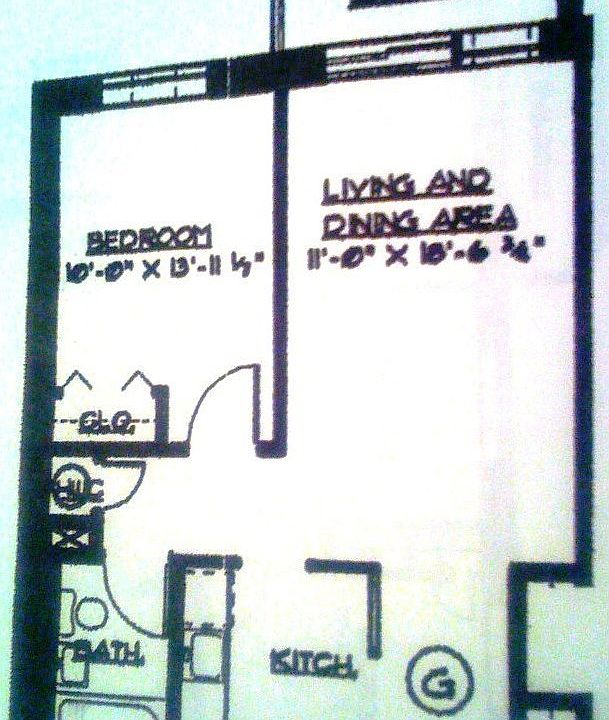 LIVING AND
DINING AREA
11'-0" X 18'-6 3/4"
BEDROOM
10'-0" X 13'-11 1/2"
CLO.
BATH.
KITCH.
G